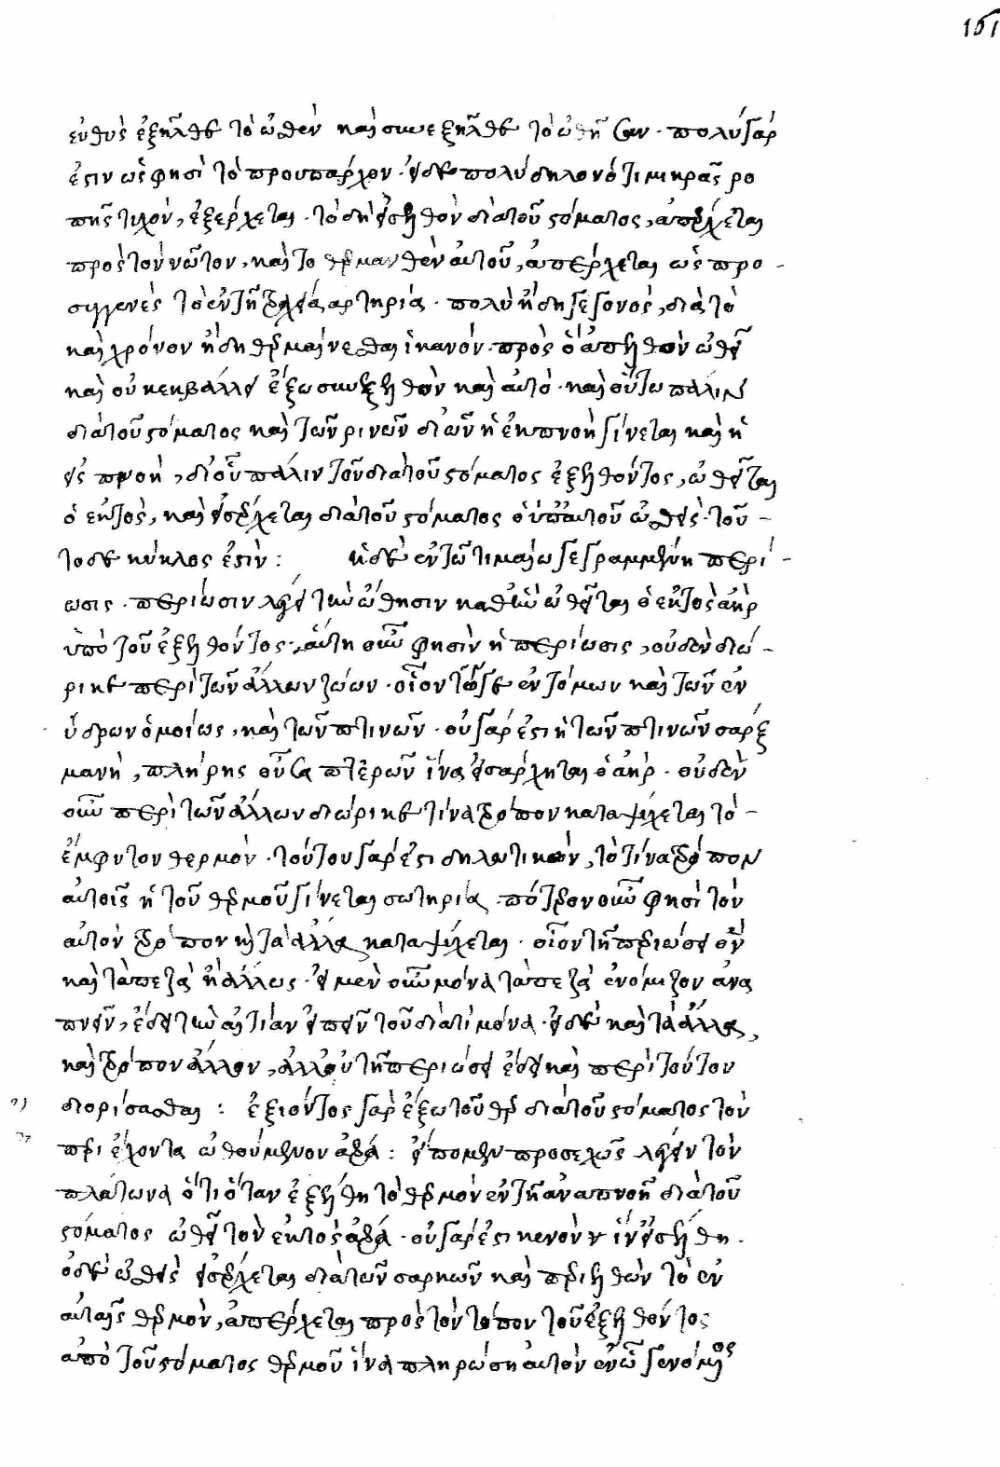 151
εὐθὺς ἐξῆλθε τὸ ὠθὲν καὶ συνεξῆλθε τὸ ὠθῆσαν· πολὺ γάρ
ἐστιν ὥς φησὶ τὸ προυπάρχον· εἰ δὲ πολὺ δηλονότι μικρᾶς ρο
πῆς τυχὸν, ἐξέρχεται· τὸ δὴ εἰσελθὸν διὰ τοῦ στόματος, ἀπέρχεται
πρὸς τὸν νῶτον, καὶ τὸ θερμανθὲν αὐτοῦ, ἀπέρχεται ὡς προ-
συγγενὲς τὸ ἐν τῆ τραχεία αρτηρία· πολὺ ἤδη γεγονὸς, διὰ τὸ
καὶ χρόνον ἤδη θερμαίνεσθαι ἱκανόν· πρὸς ὃ ἀπελθὸν ὠθεῖ
καὶ οὐκ ἐκβάλλει ἔξω συνεξελθὸν καὶ αὐτὸ· καὶ οὕτω πάλιν
διὰ τοῦ στόματος καὶ τῶν ρινῶν δι ὧν ἡ ἐκπνοὴ γίνεται καὶ ἡ
εἰσπνοὴ, δι οὗ πάλιν τοῦ διὰ τοῦ στόματος ἐξελθόντος, ὠθεῖται
ὁ ἐκτὸς, καὶ εἰσέρχεται διὰ τοῦ στόματος ὁ ὑπ αὐτοῦ ὠσθείς· τοῦ-
το δὲ κύκλος ἐστὶν: ἡ δὲ ἐν τῶ τιμαίω γεγραμμένη περί-
ωσις· περίωσιν λέγει τὴν ὤθησιν καθ ἣν ὠθεῖται ὁ ἐκτὸς ἀὴρ
ὑπὸ τοῦ ἐξελθόντος· αὕτη οὖν φησὶν ἡ περίωσις, οὐδὲν διώ-
ρικε περὶ τῶν ἄλλων ζώων· οἷον τῶν τε ἐντόμων καὶ τῶν ἐν
ύδρων ὁμοίως, καὶ τῶν πτινῶν· οὐ γάρ ἐστι ἡ τῶν πτινῶν σαρξ
μανὴ, πλήρης οὖσα πτερῶν ἵνα εἰσέρχηται ὁ ἀήρ· οὐδὲν
οὖν περὶ τῶν ἄλλων διώρικε τίνα τρόπον καταψύχεται τὸ-
ἔμφυτον θερμὸν· τούτου γάρ ἐστι δηλωτικὸν, τὸ τίνα τρόπον
αὐτοῖς ἡ τοῦ θερμοῦ γίνεται σωτηρία· πότερον οὖν φησὶ τὸν
αὐτὸν τρόπον καὶ τὰ ἄλλα καταψύχεται· οἷον τῆ περιώσει οἷον
καὶ τὰ πεζὰ ἢ ἄλλως· εἰ μὲν οὖν μόνα τὰ πεζὰ ἐνόμιζον ἀνα
πνεῖν, ἔδει τὴν αἰτίαν εἰπεῖν τοῦ διὰ τί μόνα· εἰ δὲ καὶ τὰ ἄλλα,
καὶ τρόπον ἄλλον, ἀλλ οὐ τῆ περιώσει ἔδει καὶ περὶ τούτου
διορίσασθαι: ἐξιόντος γὰρ ἔξω τοῦ θερμοῦ διὰ τοῦ στόματος τὸν
περιέχοντα ὠθούμενον ἀέρα: εἴπομεν προσεχῶς λέγειν τὸν
πλάτωνα ὅτι ὅταν ἐξέλθη τὸ θερμὸν ἐν τῆ ἀναπνοῆ διὰ τοῦ
στόματος ὠθεῖ τὸν ἐκτὸς ἀέρα· οὐ γάρ ἐστι κενὸν ἵν εἰσέλθη·
ὁ δὲ ὠσθεὶς εἰσέρχεται διὰ τῶν σαρκῶν καὶ περιελθὼν τὸ ἐν
αὐταῖς θερμὸν, ἀπέρχεται πρὸς τὸν τόπον τοῦ ἐξελθόντος
ἀπὸ τοῦ στόματος θερμοῦ ἵνα πληρώση αὐτὸν ἐν ὧ γενόμενος